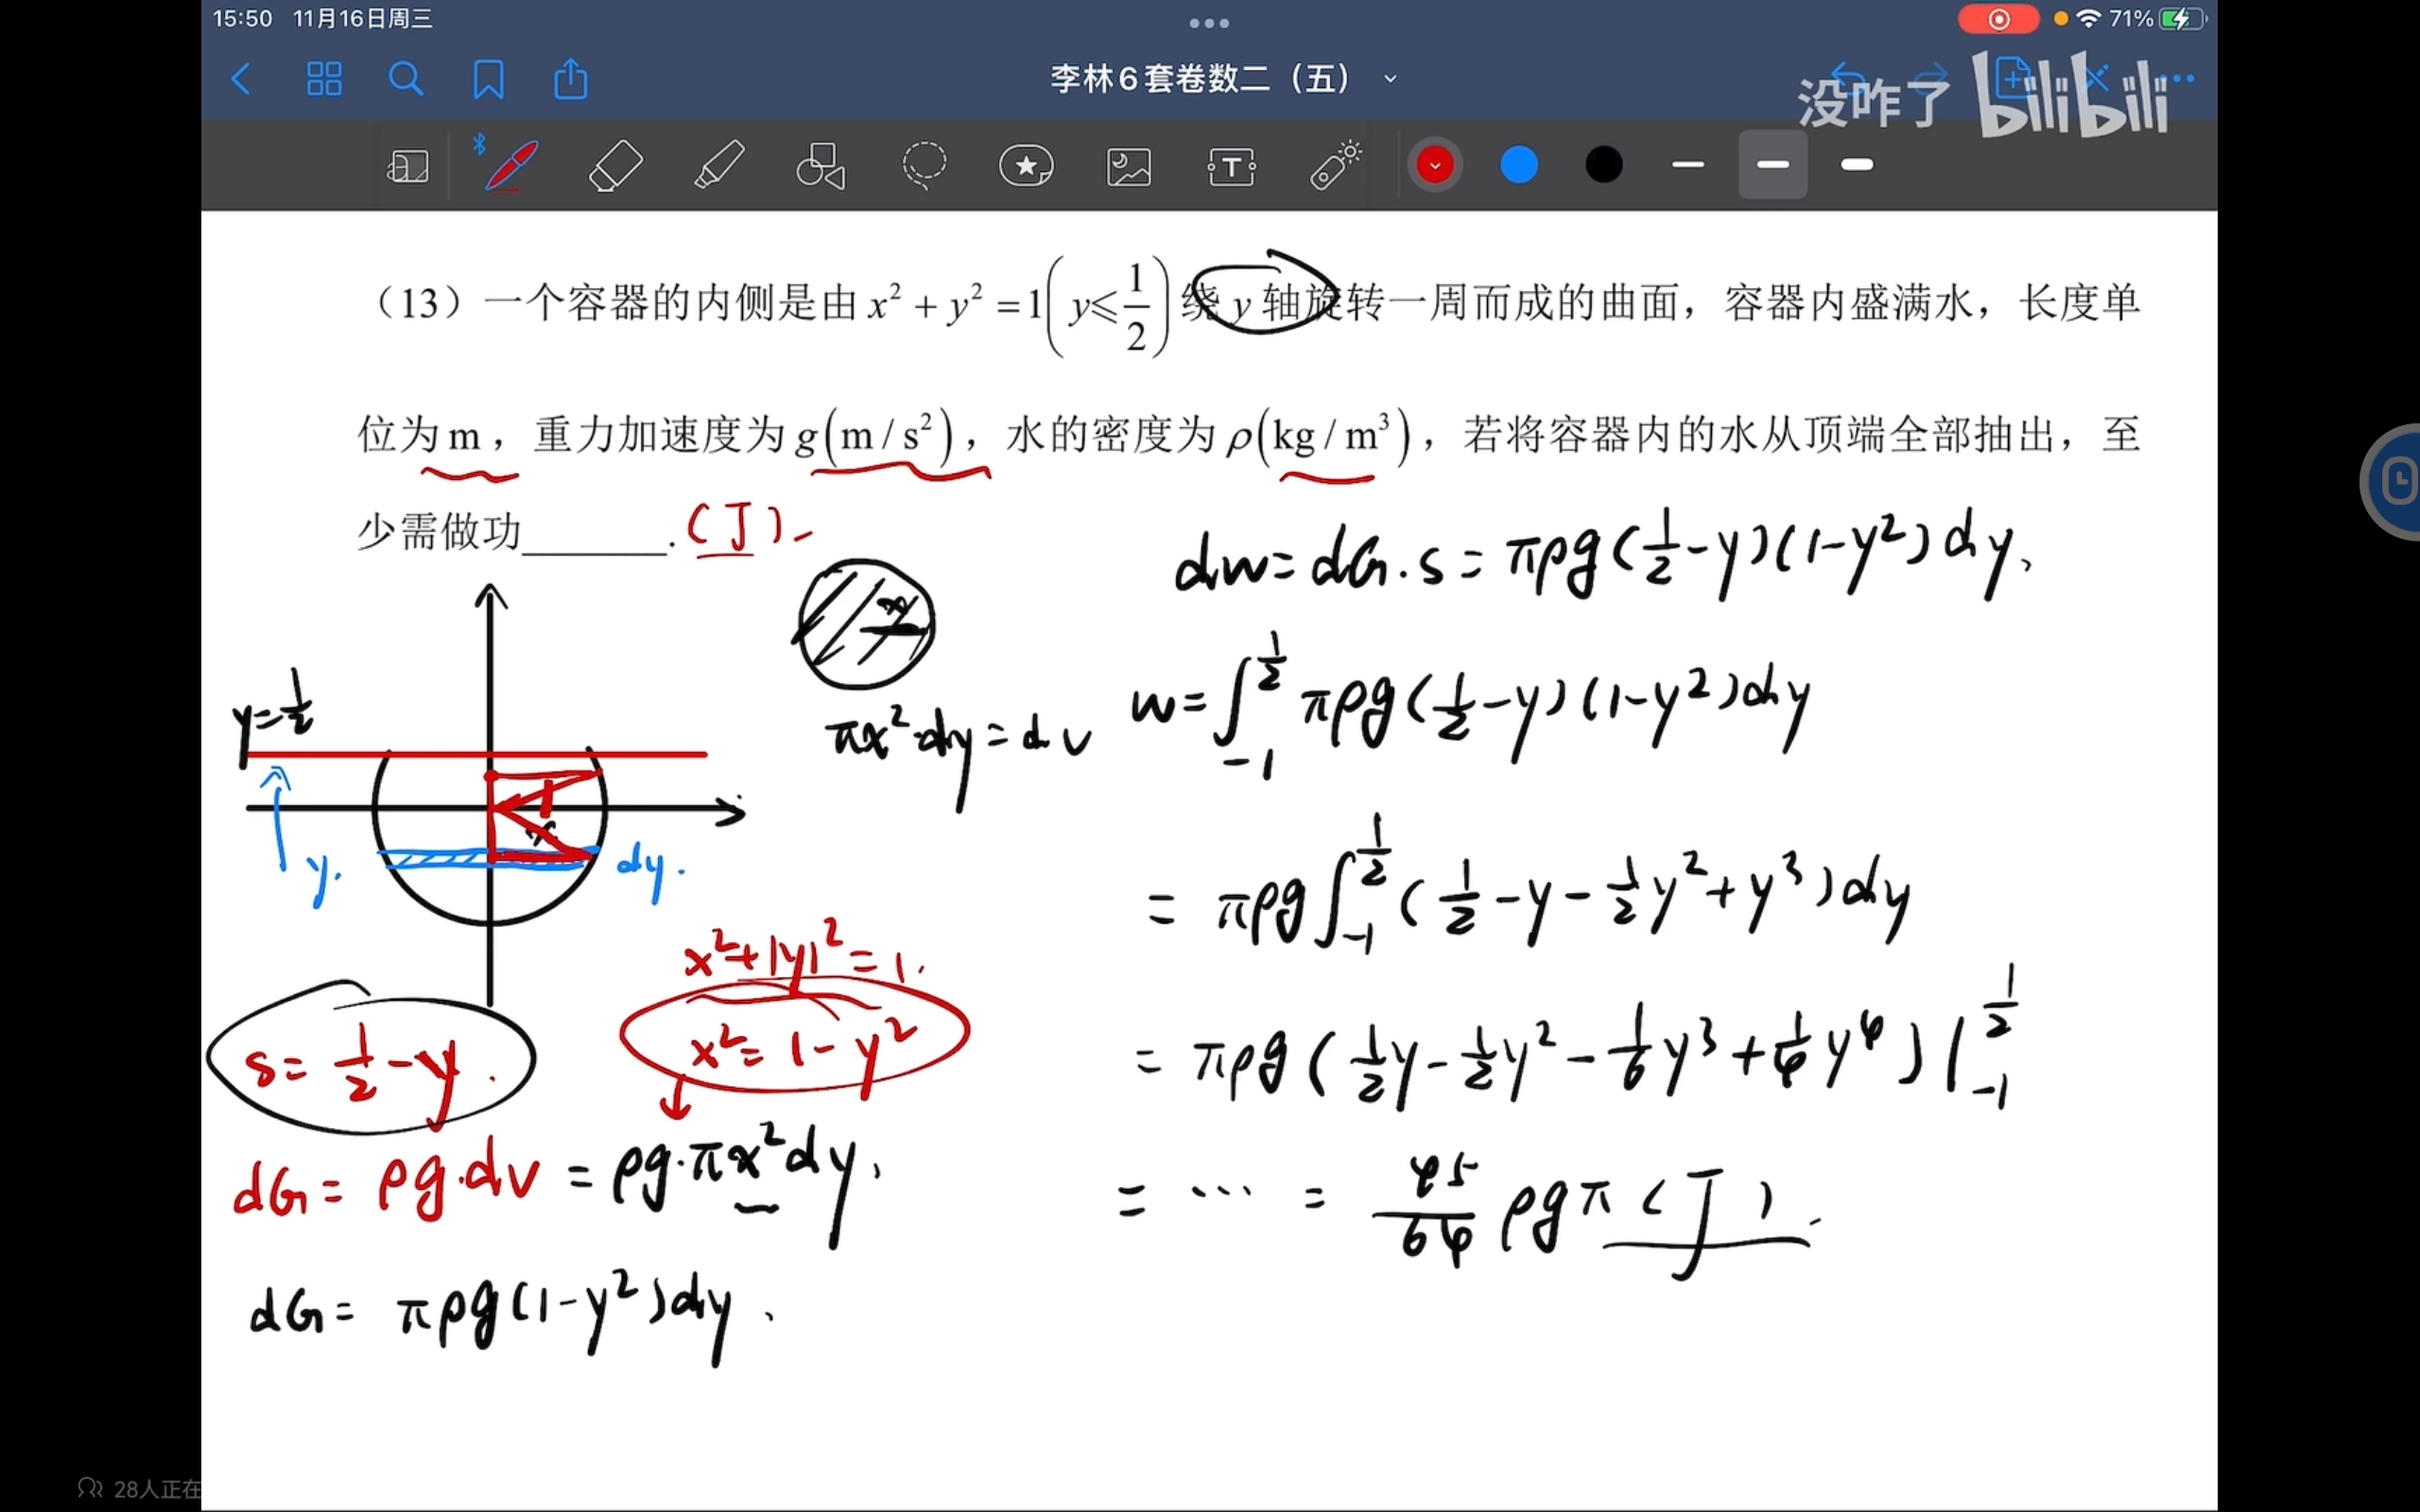 15:50 11月16日周三
71%
李林6套卷数二（五）
没咋了 bilibili
（13）一个容器的内侧是由 x² + y² = 1 (y⩽1/2) 绕 y 轴旋转一周而成的曲面，容器内盛满水，长度单
位为 m，重力加速度为 g(m/s²)，水的密度为 ρ(kg/m³)，若将容器内的水从顶端全部抽出，至
少需做功______. (J).
y=1/2
y.
dy.
x
1
x
πx²·dy=dv
x²+|y|²=1.
s=1/2-y.
x²=1-y²
dG=ρg·dv=ρg·πx²dy,
dG=πρg(1-y²)dy.
dw=dG.s=πρg(1/2-y)(1-y²)dy,
w=∫_{-1}^{1/2} πρg(1/2-y)(1-y²)dy
=πρg∫_{-1}^{1/2}(1/2-y-1/2y²+y³)dy
=πρg(1/2y-1/2y²-1/6y³+1/4y⁴)|_{-1}^{1/2}
=…=45/64 ρgπ(J).
28人正在